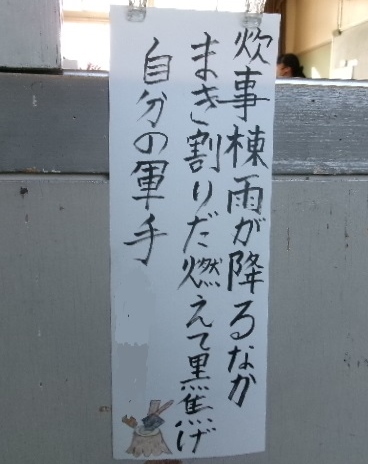 炊事棟雨が降るなか
まき割りだ燃えて黒焦げ
自分の軍手